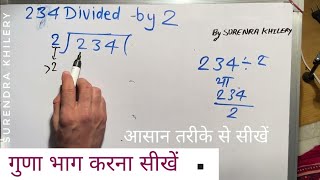 SURENDRA KHILERY
234 Divided -by 2
By SURENDRA KHILERY
2) 234 (
>2
234 ÷ 2
या
234
2
आसान तरीके से सीखें
गुणा भाग करना सीखें